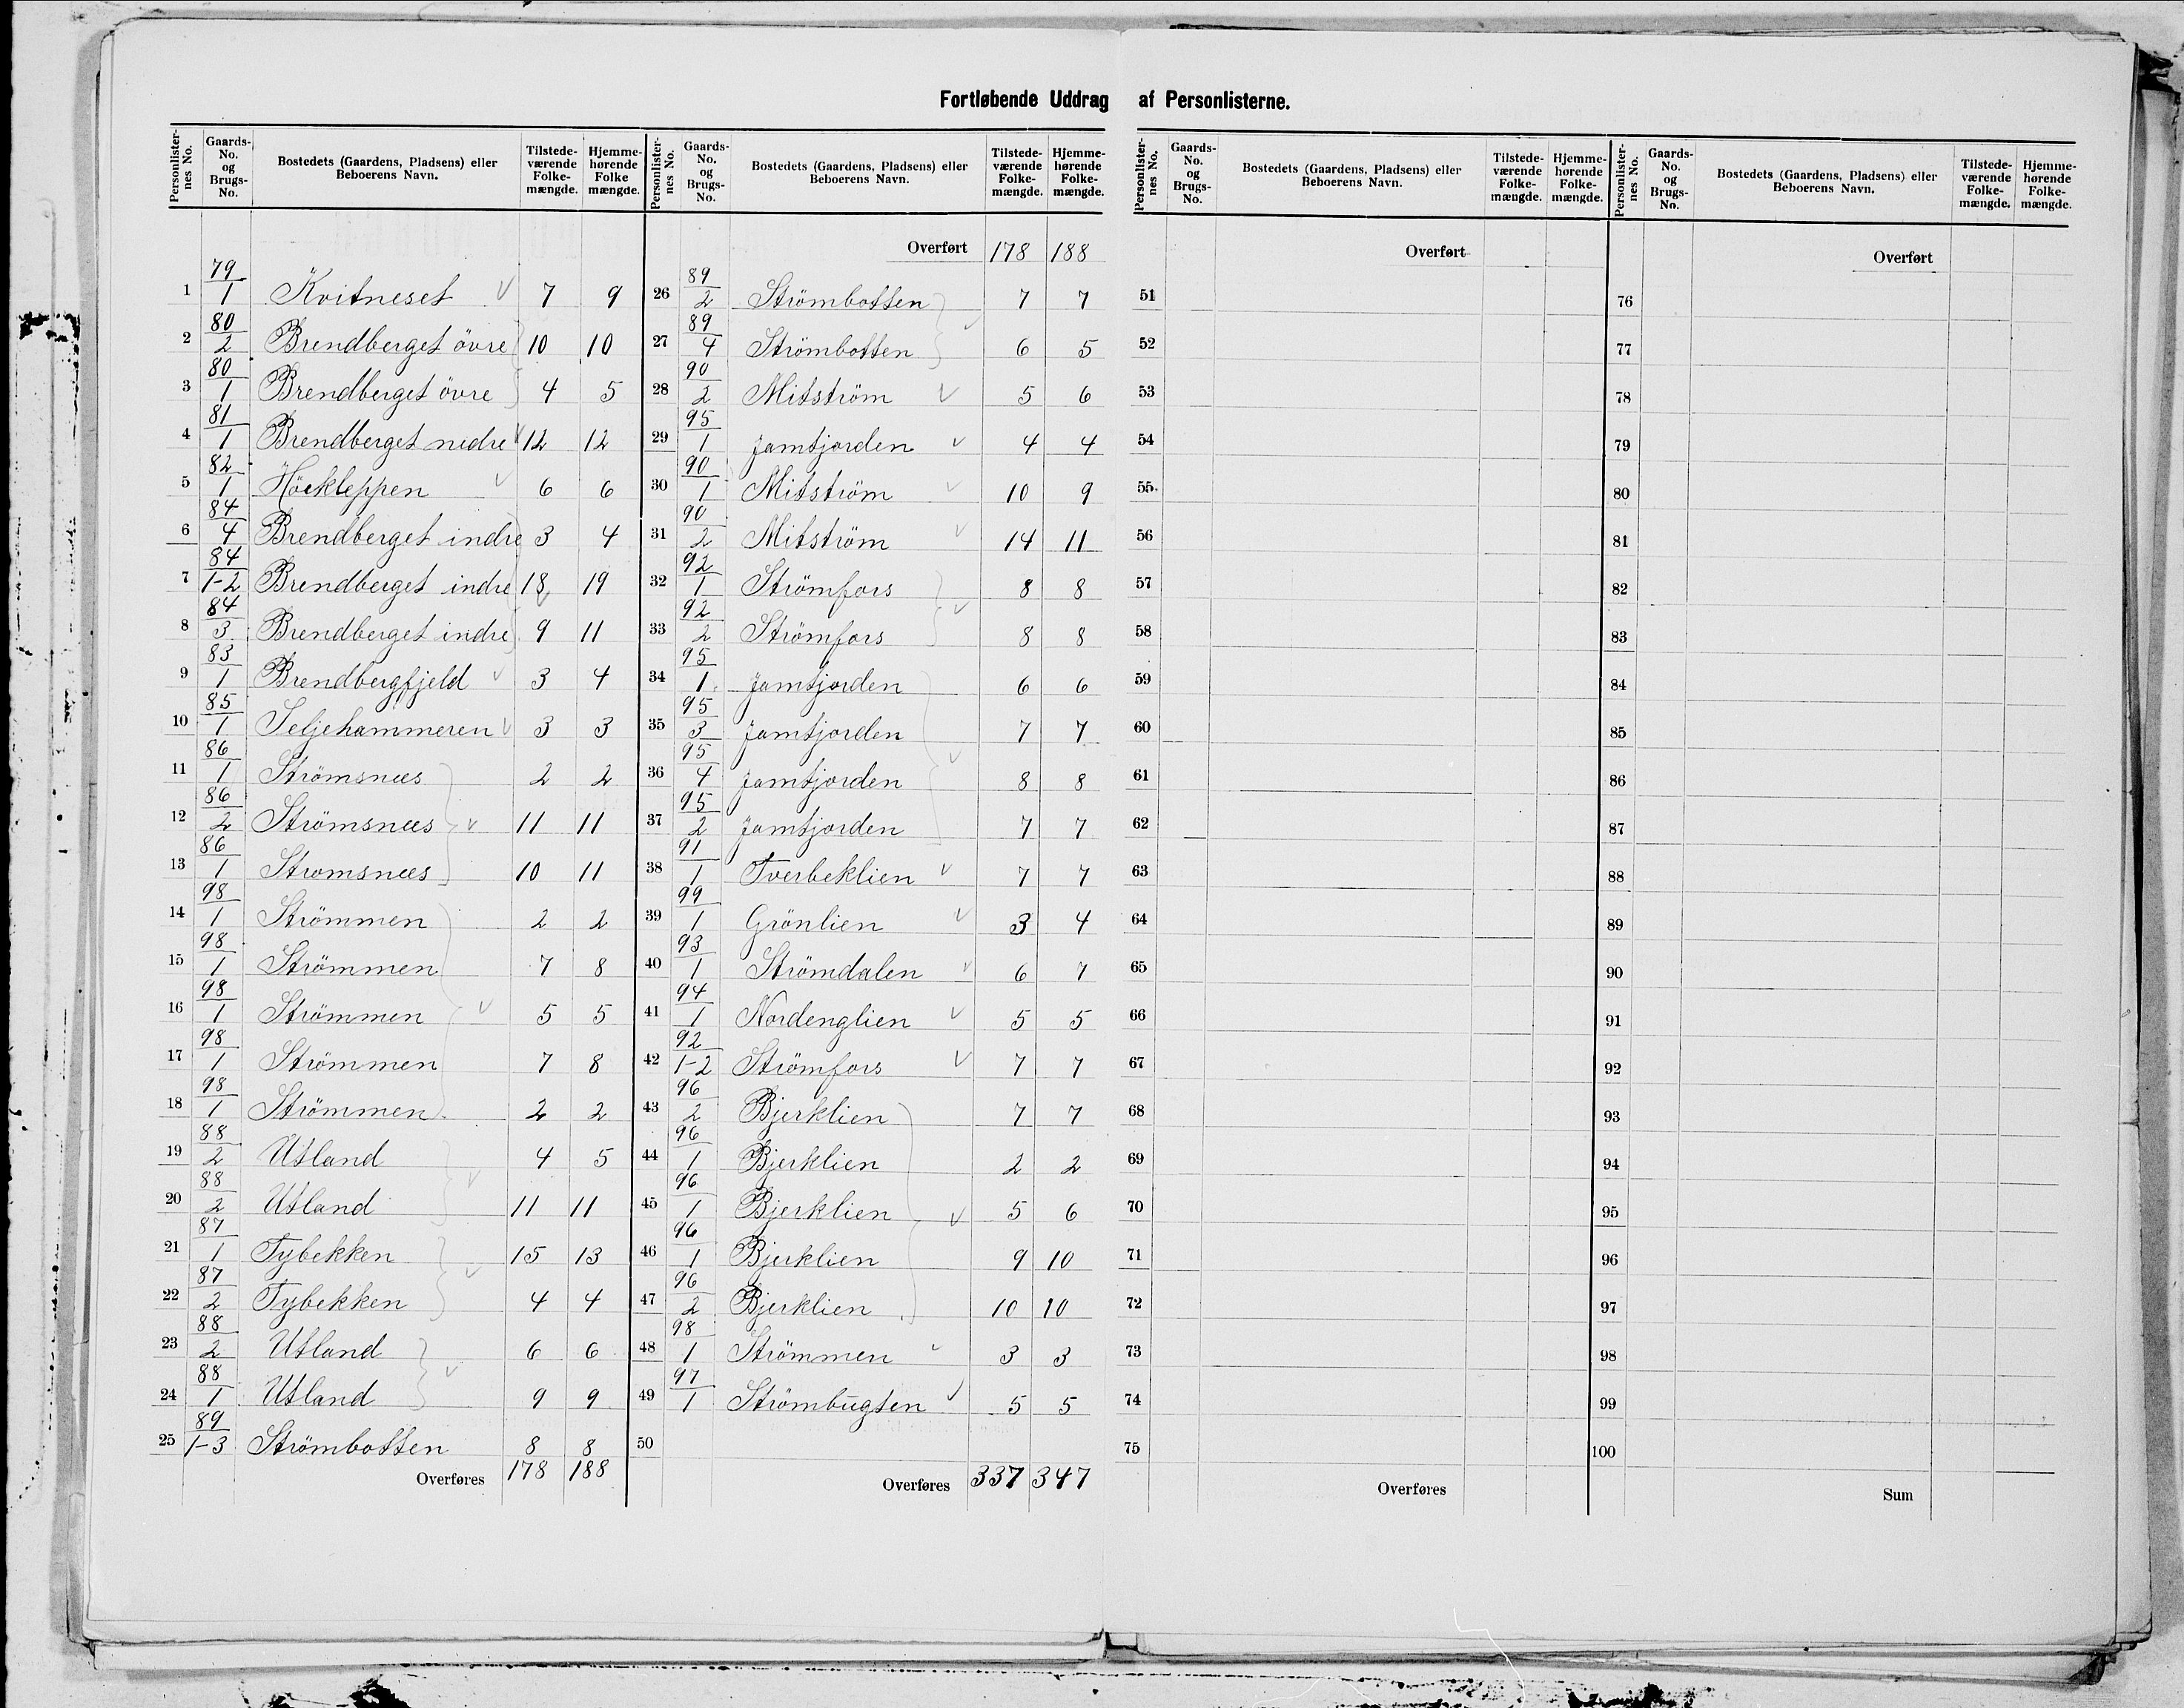 Fortløbende Uddrag af Personlisterne.
Personlister-nes No. | Gaards-No. og Brugs-No. | Bostedets (Gaardens, Pladsens) eller Beboerens Navn. | Tilstede-værende Folke-mængde. | Hjemme-hørende Folke mængde.
1 | 79/1 | Kvitneset | 7 | 9
2 | 80/2 | Brendberget övre | 10 | 10
3 | 80/1 | Brendberget övre | 4 | 5
4 | 81/1 | Brendberget nedre | 12 | 12
5 | 82/1 | Höekleppen | 6 | 6
6 | 84/4 | Brendberget indre | 3 | 4
7 | 84/1-2 | Brendberget indre | 18 | 19
8 | 84/3 | Brendberget indre | 9 | 11
9 | 83/1 | Brendbergfjeld | 3 | 4
10 | 85/1 | Seljehammeren | 3 | 3
11 | 86/1 | Strömsnæs | 2 | 2
12 | 86/2 | Strömsnæs | 11 | 11
13 | 86/1 | Stromsnæs | 10 | 11
14 | 98/1 | Strömmen | 2 | 2
15 | 98/1 | Strömmen | 7 | 8
16 | 98/1 | Strömmen | 5 | 5
17 | 98/1 | Strömmen | 7 | 8
18 | 98/1 | Strömmen | 2 | 2
19 | 88/2 | Utland | 4 | 5
20 | 88/2 | Utland | 11 | 11
21 | 87/1 | Tybekken | 15 | 13
22 | 87/2 | Tybekken | 4 | 4
23 | 88/2 | Utland | 6 | 6
24 | 88/1 | Utland | 9 | 9
25 | 89/1-3 | Strömbotten | 8 | 8
Overføres | 178 | 188
Personlister-nes No. | Gaards-No. og Brugs-No. | Bostedets (Gaardens, Pladsens) eller Beboerens Navn. | Tilstede-værende Folke-mængde. | Hjemme-hørende Folke-mængde.
Overført | 178 | 188
26 | 89/2 | Strömbotten | 7 | 7
27 | 89/4 | Strömbotten | 6 | 5
28 | 90/2 | Mitström | 5 | 6
29 | 95/1 | Jamtjorden | 4 | 4
30 | 90/1 | Mitström | 10 | 9
31 | 90/2 | Mitström | 14 | 11
32 | 92/1 | Strömfors | 8 | 8
33 | 92/2 | Strömfors | 8 | 8
34 | 95/1 | Jamtjorden | 6 | 6
35 | 95/3 | Jamtjorden | 7 | 7
36 | 95/4 | Jamtjorden | 8 | 8
37 | 95/2 | Jamtjorden | 7 | 7
38 | 91/1 | Tverbeklien | 7 | 7
39 | 99/1 | Grönlien | 3 | 4
40 | 93/1 | Strömdalen | 6 | 7
41 | 94/1 | Nordenglien | 5 | 5
42 | 92/1-2 | Strömfors | 7 | 7
43 | 96/2 | Bjerklien | 7 | 7
44 | 96/1 | Bjerklien | 2 | 2
45 | 96/1 | Bjerklien | 5 | 6
46 | 96/1 | Bjerklien | 9 | 10
47 | 96/2 | Bjerklien | 10 | 10
48 | 98/1 | Strömmen | 3 | 3
49 | 97/1 | Strömbugten | 5 | 5
50
Overføres | 337 | 347
Personlister-nes No. | Gaards-No. og Brugs-No. | Bostedets (Gaardens, Pladsens) eller Beboerens Navn. | Tilstede-værende Folke-mængde. | Hjemme-hørende Folke-mængde.
Overført
51
52
53
54
55
56
57
58
59
60
61
62
63
64
65
66
67
68
69
70
71
72
73
74
75
Overføres
Personlister-nes No. | Gaards-No. og Brugs-No. | Bostedets (Gaardens, Pladsens) eller Beboerens Navn. | Tilstede-værende Folke-mængde. | Hjemme-hørende Folke-mængde.
Overført
76
77
78
79
80
81
82
83
84
85
86
87
88
89
90
91
92
93
94
95
96
97
98
99
100
Sum